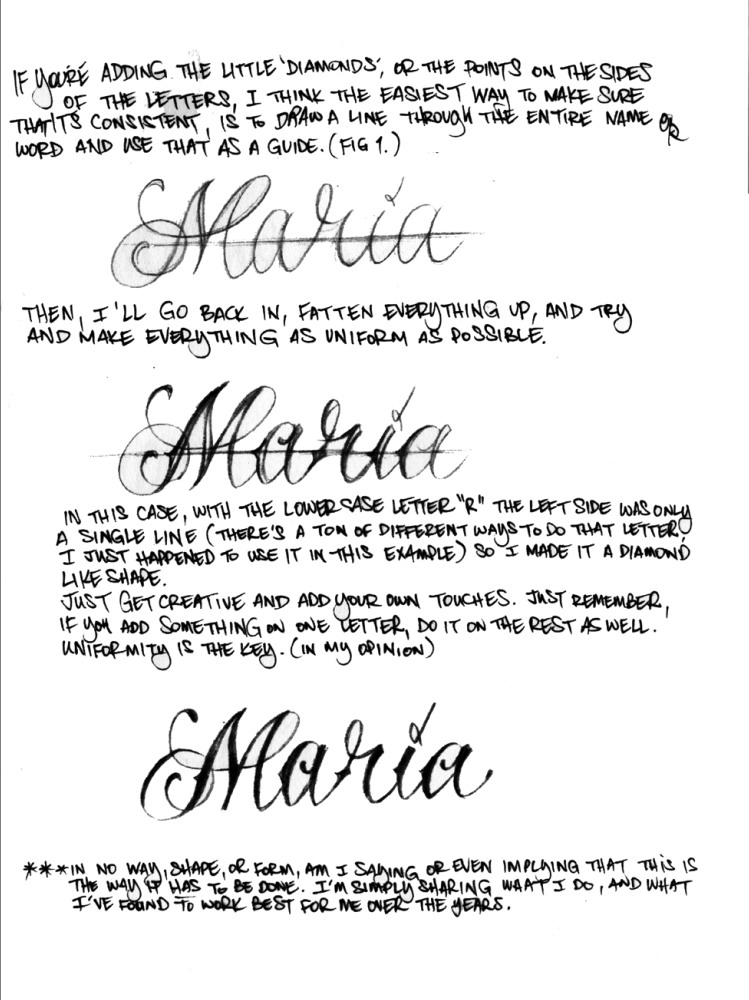 IF YOU'RE ADDING THE LITTLE 'DIAMONDS', OR THE POINTS ON THE SIDES
OF THE LETTERS, I THINK THE EASIEST WAY TO MAKE SURE
THAT ITS CONSISTENT, IS TO DRAW A LINE THROUGH THE ENTIRE NAME OR
WORD AND USE THAT AS A GUIDE. (FIG 1.)
Maria
THEN, I'LL GO BACK IN, FATTEN EVERYTHING UP, AND TRY
AND MAKE EVERYTHING AS UNIFORM AS POSSIBLE.
Maria
IN THIS CASE, WITH THE LOWERCASE LETTER "R" THE LEFT SIDE WAS ONLY
A SINGLE LINE (THERE'S A TON OF DIFFERENT WAYS TO DO THAT LETTER,
I JUST HAPPENED TO USE IT IN THIS EXAMPLE) SO I MADE IT A DIAMOND
LIKE SHAPE.
JUST GET CREATIVE AND ADD YOUR OWN TOUCHES. JUST REMEMBER,
IF YOU ADD SOMETHING ON ONE LETTER, DO IT ON THE REST AS WELL.
UNIFORMITY IS THE KEY. (IN MY OPINION)
Maria
***IN NO WAY, SHAPE, OR FORM, AM I SAYING OR EVEN IMPLYING THAT THIS IS
THE WAY IT HAS TO BE DONE. I'M SIMPLY SHARING WHAT I DO, AND WHAT
I'VE FOUND TO WORK BEST FOR ME OVER THE YEARS.